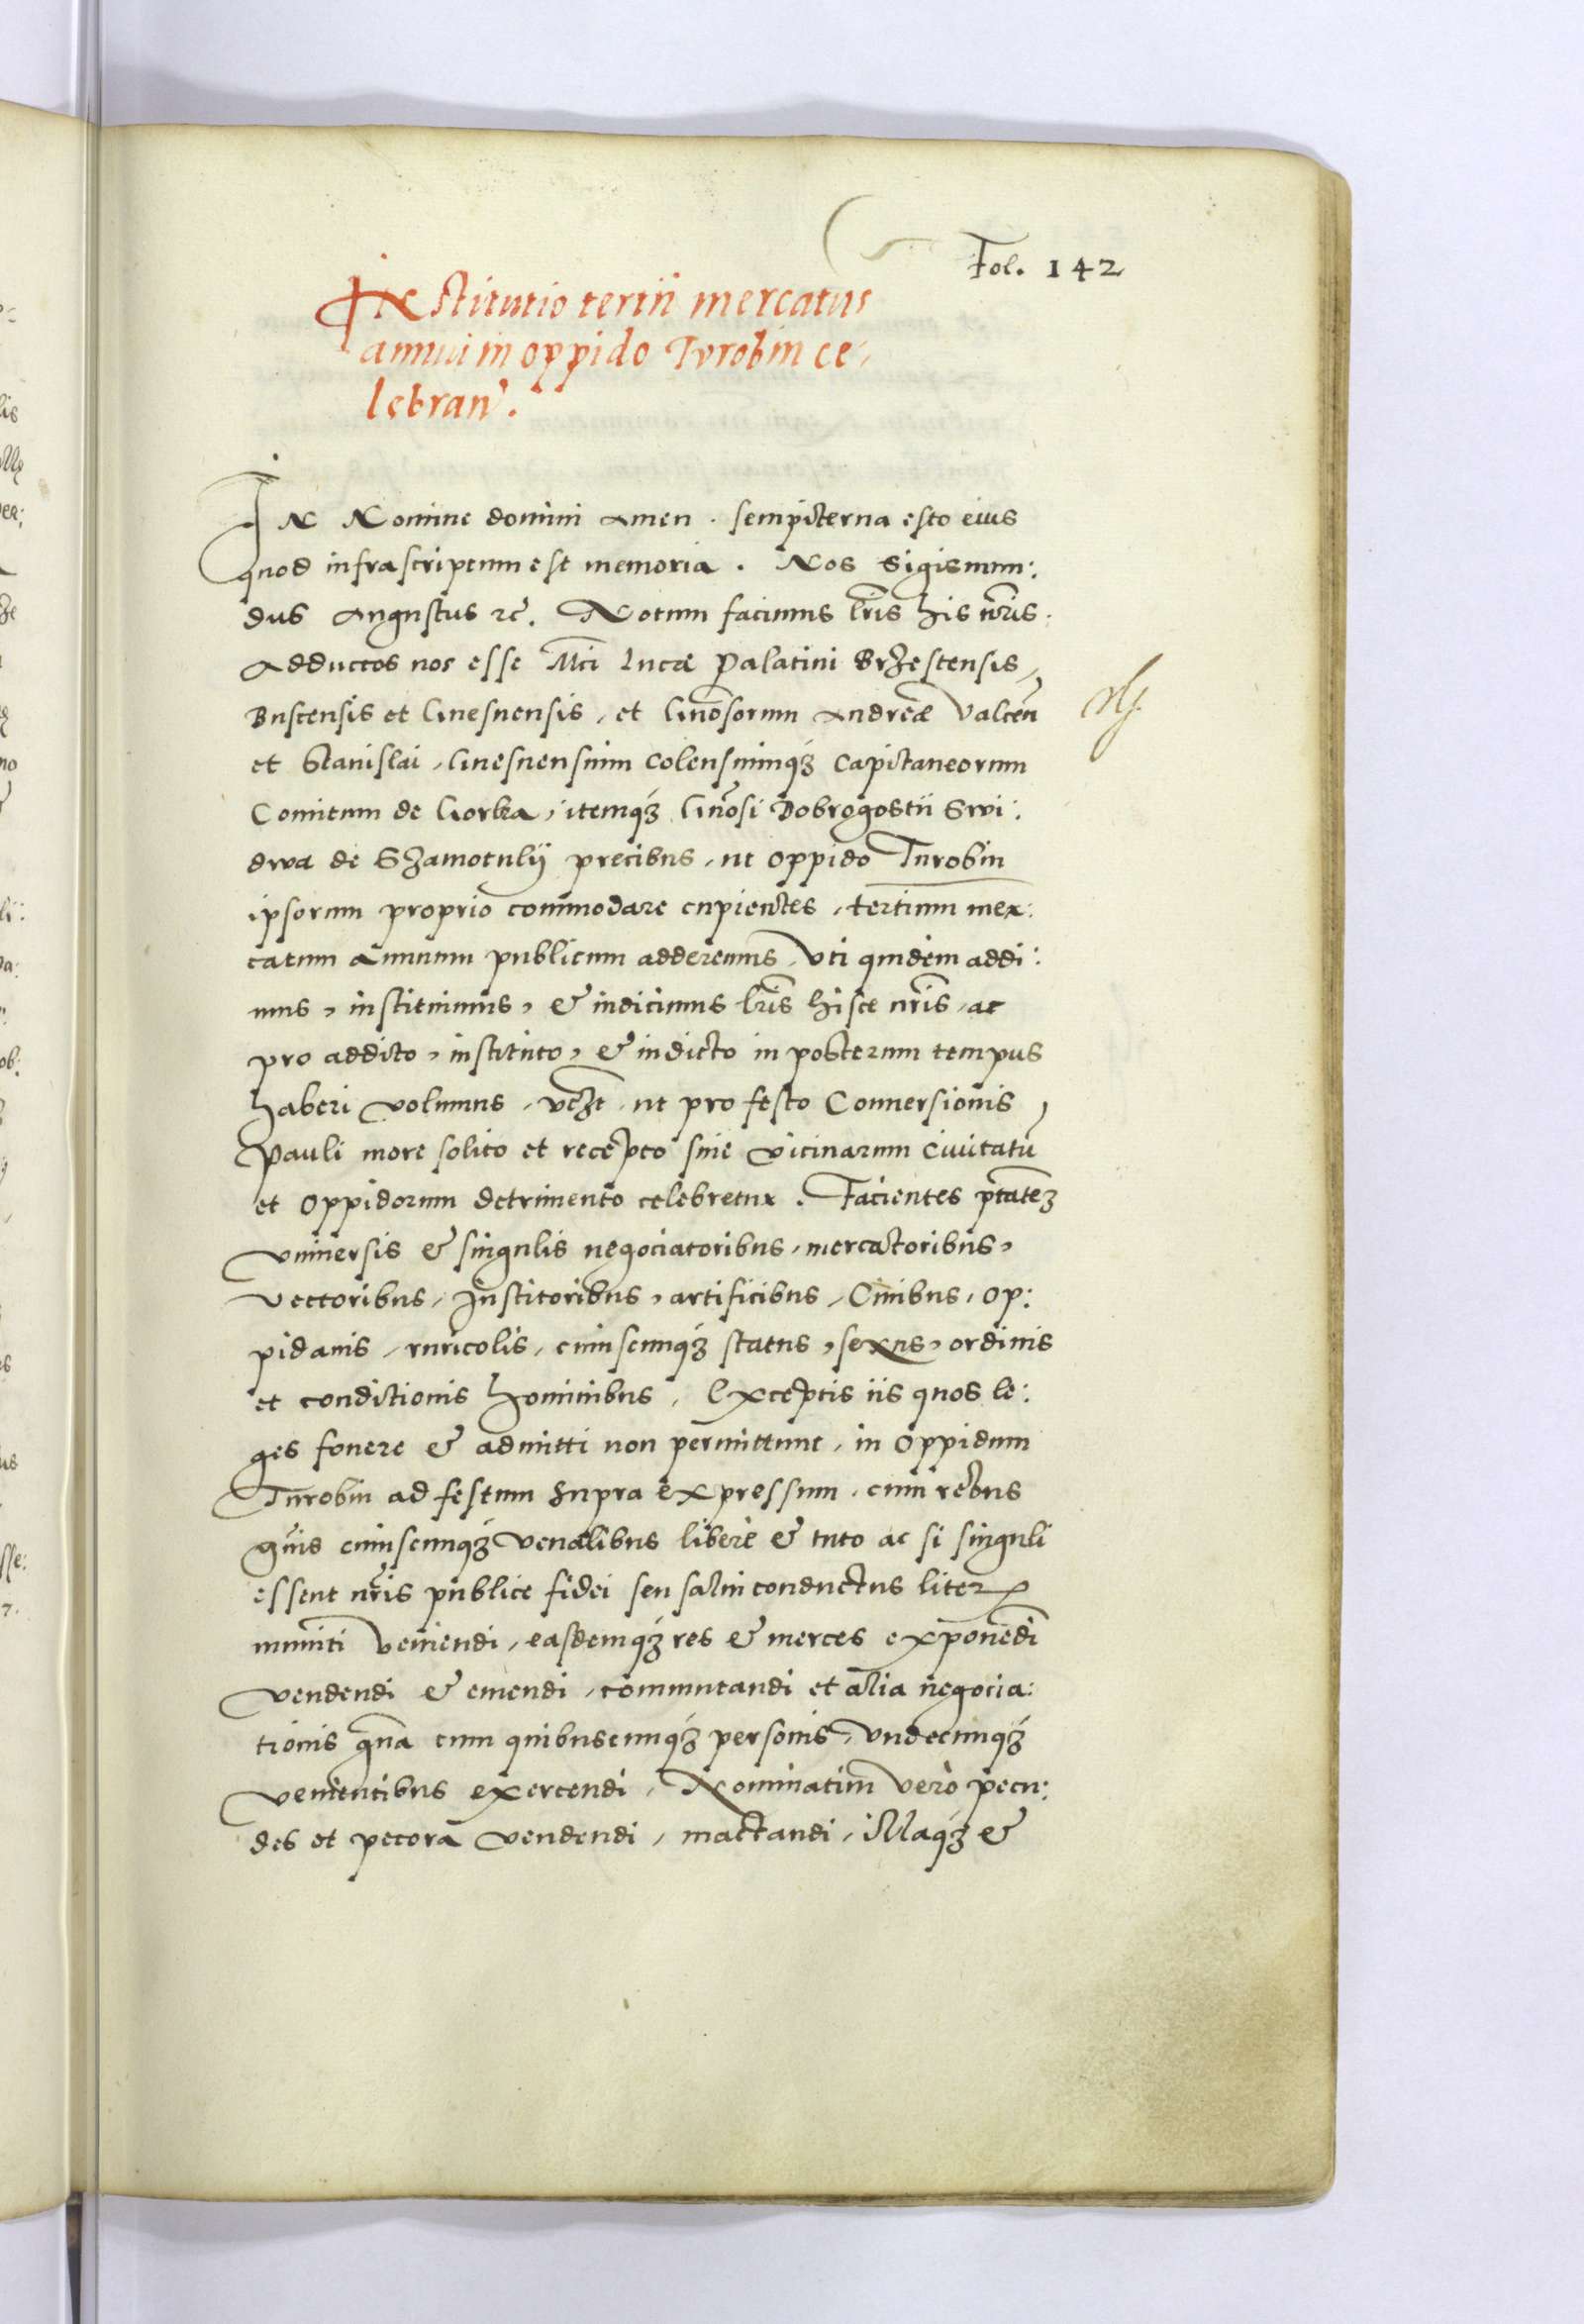 Fol. 142
INstitutio tertii mercatus
annui in oppido Turobin ce:
lebran̄.
IN Nomine domini Amen. sempiterna esto eius
quod infrascriptum est memoria. Nos Sigismun:
dus Augustus ꝛc̄. Notum facimus lr̄is his nr̄is.
Adductos nos esse Mc̄i Lucæ Palatini Brzestensis,
Buscensis et Gnesnensis, et Gn̄osorum Andreæ Valcen̄
et Stanislai, Gnesnensium Colensiumqꝫ Capitaneorum
Comitum de Gorka, itemqꝫ Gn̄osi Dobrogostii Swi:
dwa de Szamotulij precibus, ut oppido Turobin
ipsorum proprio commodare cupientes, tertium mer:
catum annuum publicum adderemus, Vti quidem addi:
mus, instituimus, & indicimus lr̄is hisce nr̄is, ac
pro addito, instituto, & indicto in posterum tempus
haberi volumus, vcꝫt, ut pro festo Conuersionis
Pauli more solito et recepto sine vicinarum Ciuitatū
et Oppidorum detrimento celebretur. Facientes ptātem
vniuersis & singulis negociatoribus, mercatoribus,
Vectoribus, Institoribus, artificibus, Ciuibus, Op:
pidanis, ruricolis, cuiuscunqꝫ status, sexus, ordinis
et conditionis hominibus, Exceptis iis quos le:
ges fouere & admitti non permittunt, in Oppidum
Turobin ad festum supra expressum, cum rebus
gn̄is cuiuscunqꝫ venalibus liberè & tuto ac si singuli
essent nr̄is publice fidei seu salui conductus literꝝ
muniti Veniendi, easdemqꝫ res & merces exponēdi
vendendi & emendi, commutandi et alia negocia:
tionis gn̄a cum quibuscunqꝫ personis, Vndecunqꝫ
venientibus exercendi, Nominatim Verò pecu:
des et pecora vendendi, mactandi, illaqꝫ &